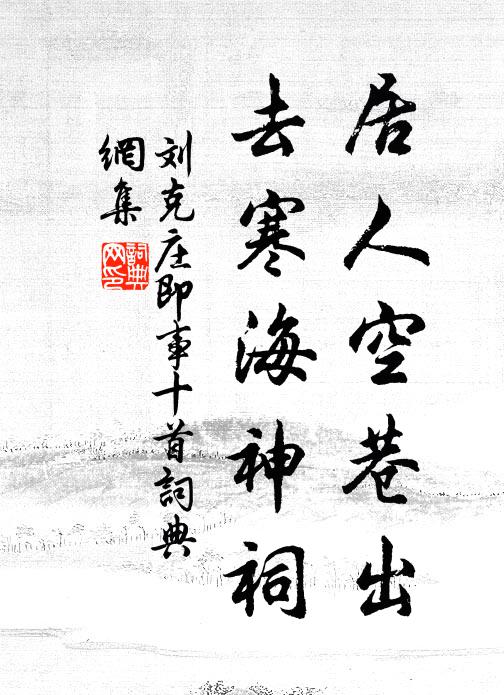 居人空巷出
去寒海神祠
刘克庄即事十首詞典
網集
詞典网印